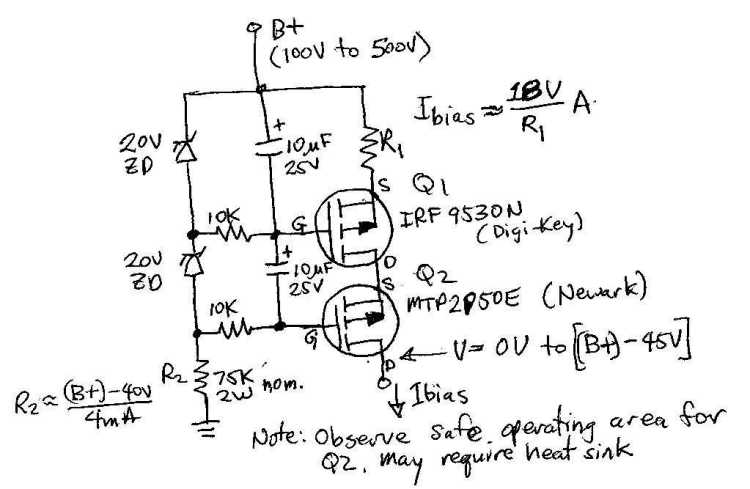 B+
(100V to 500V)
Ibias ≈ 18V
R1
A
20V
ZD
+
10μF
25V
R1
S
Q1
IRF 9530N
(Digi-Key)
10K
G
D
20V
ZD
+
10μF
25V
S
Q2
MTP2P50E (Newark)
10K
G
D
V= 0V to [(B+)-45V]
R2 ≈ (B+)-40V
4mA
R2
75K nom.
2W
Ibias
Note: Observe safe operating area for
Q2, may require heat sink